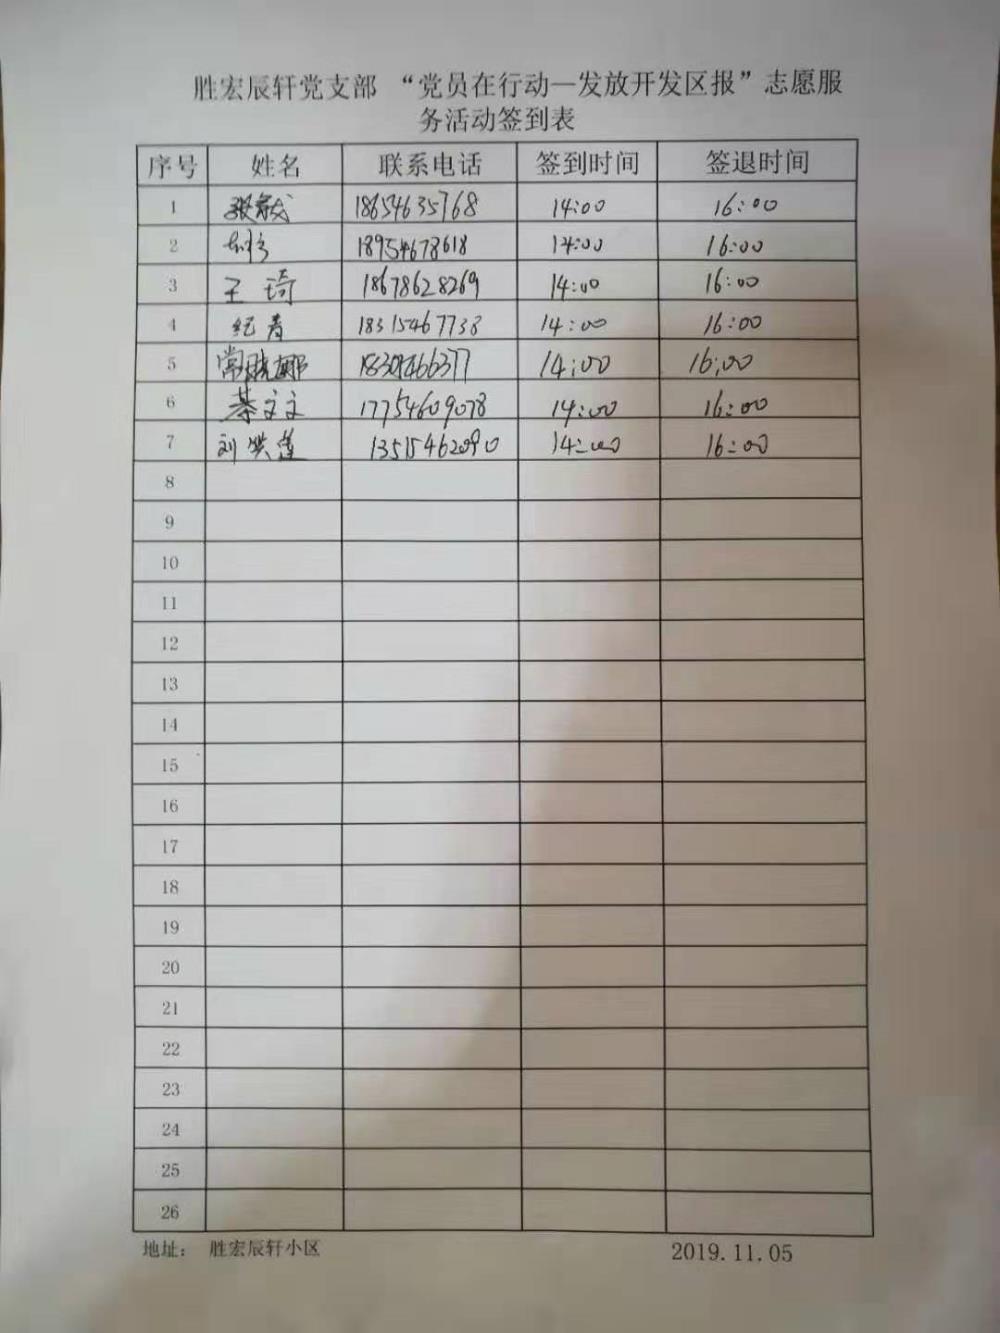 胜宏辰轩党支部 “党员在行动—发放开发区报”志愿服
务活动签到表
序号 姓名 联系电话 签到时间 签退时间
1 18654635768 14:00 16:00
2 18954678618 14:00 16:00
3 王琦 18678628269 14:00 16:00
4 纪青 18315467738 14:00 16:00
5 14:00 16:00
6 綦文文 17754609078 14:00 16:00
7 刘洪莲 13515462090 14:00 16:00
8
9
10
11
12
13
14
15
16
17
18
19
20
21
22
23
24
25
26
地址： 胜宏辰轩小区 2019.11.05